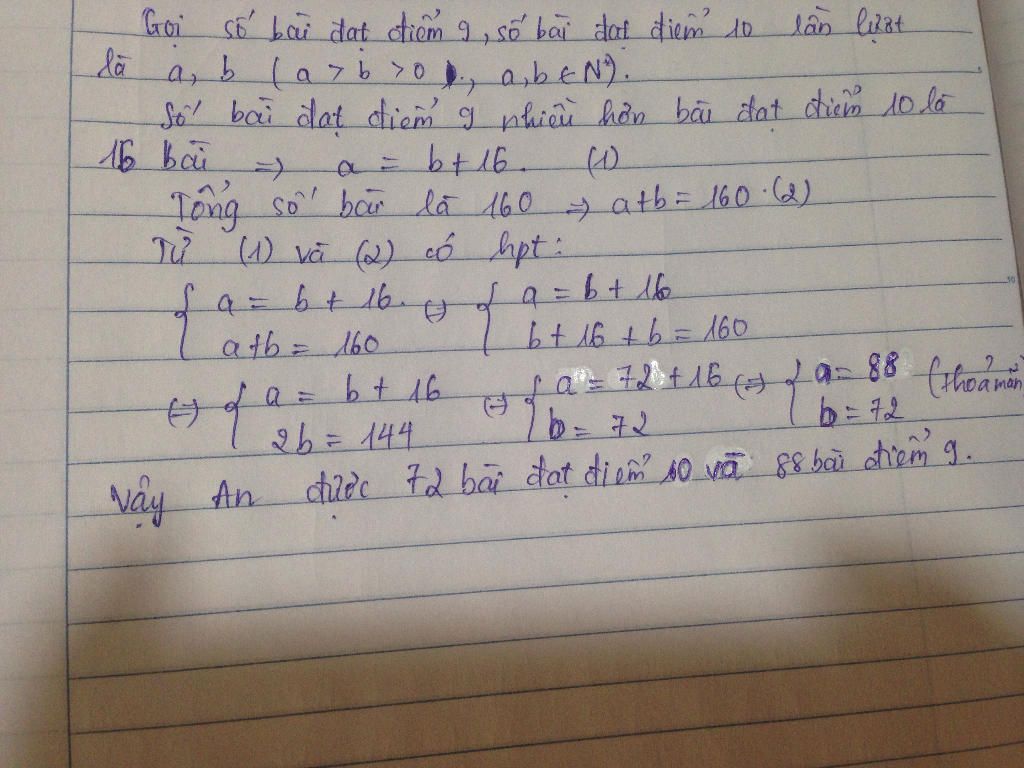 Gọi số bài đạt điểm 9, số bài đạt điểm 10 lần lượt
là a, b ( a > b > 0 ., a,b ∈ N*).
Số bài đạt điểm 9 nhiều hơn bài đạt điểm 10 là
16 bài => a = b + 16. (1)
Tổng số bài là 160 => a+b = 160. (2)
Từ (1) và (2) có hpt:
{ a = b + 16. (=) { a = b + 16
a+b = 160 b + 16 + b = 160
(=) { a = b + 16 (=) { a = 72 + 16 (=) { a = 88 (thoả mãn
2b = 144 b = 72 b = 72
Vậy An được 72 bài đạt điểm 10 và 88 bài điểm 9.